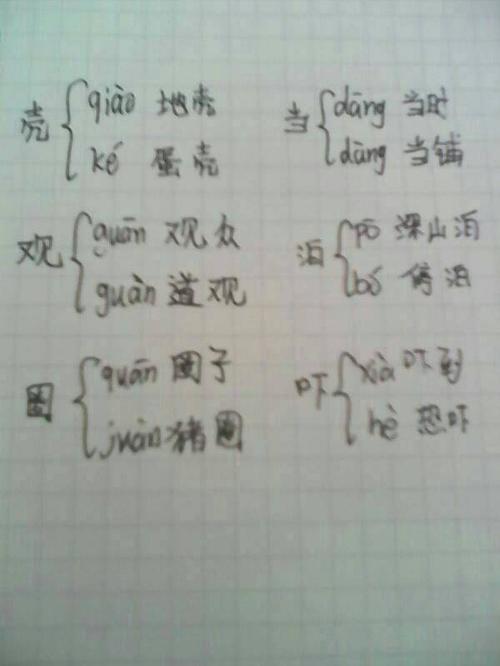 壳 qiào 地壳
ké 蛋壳
当 dāng 当时
dàng 当铺
观 guān 观众
guàn 道观
泊 pō 梁山泊
bó 停泊
圈 quān 圈子
juàn 猪圈
吓 xià 吓到
hè 恐吓